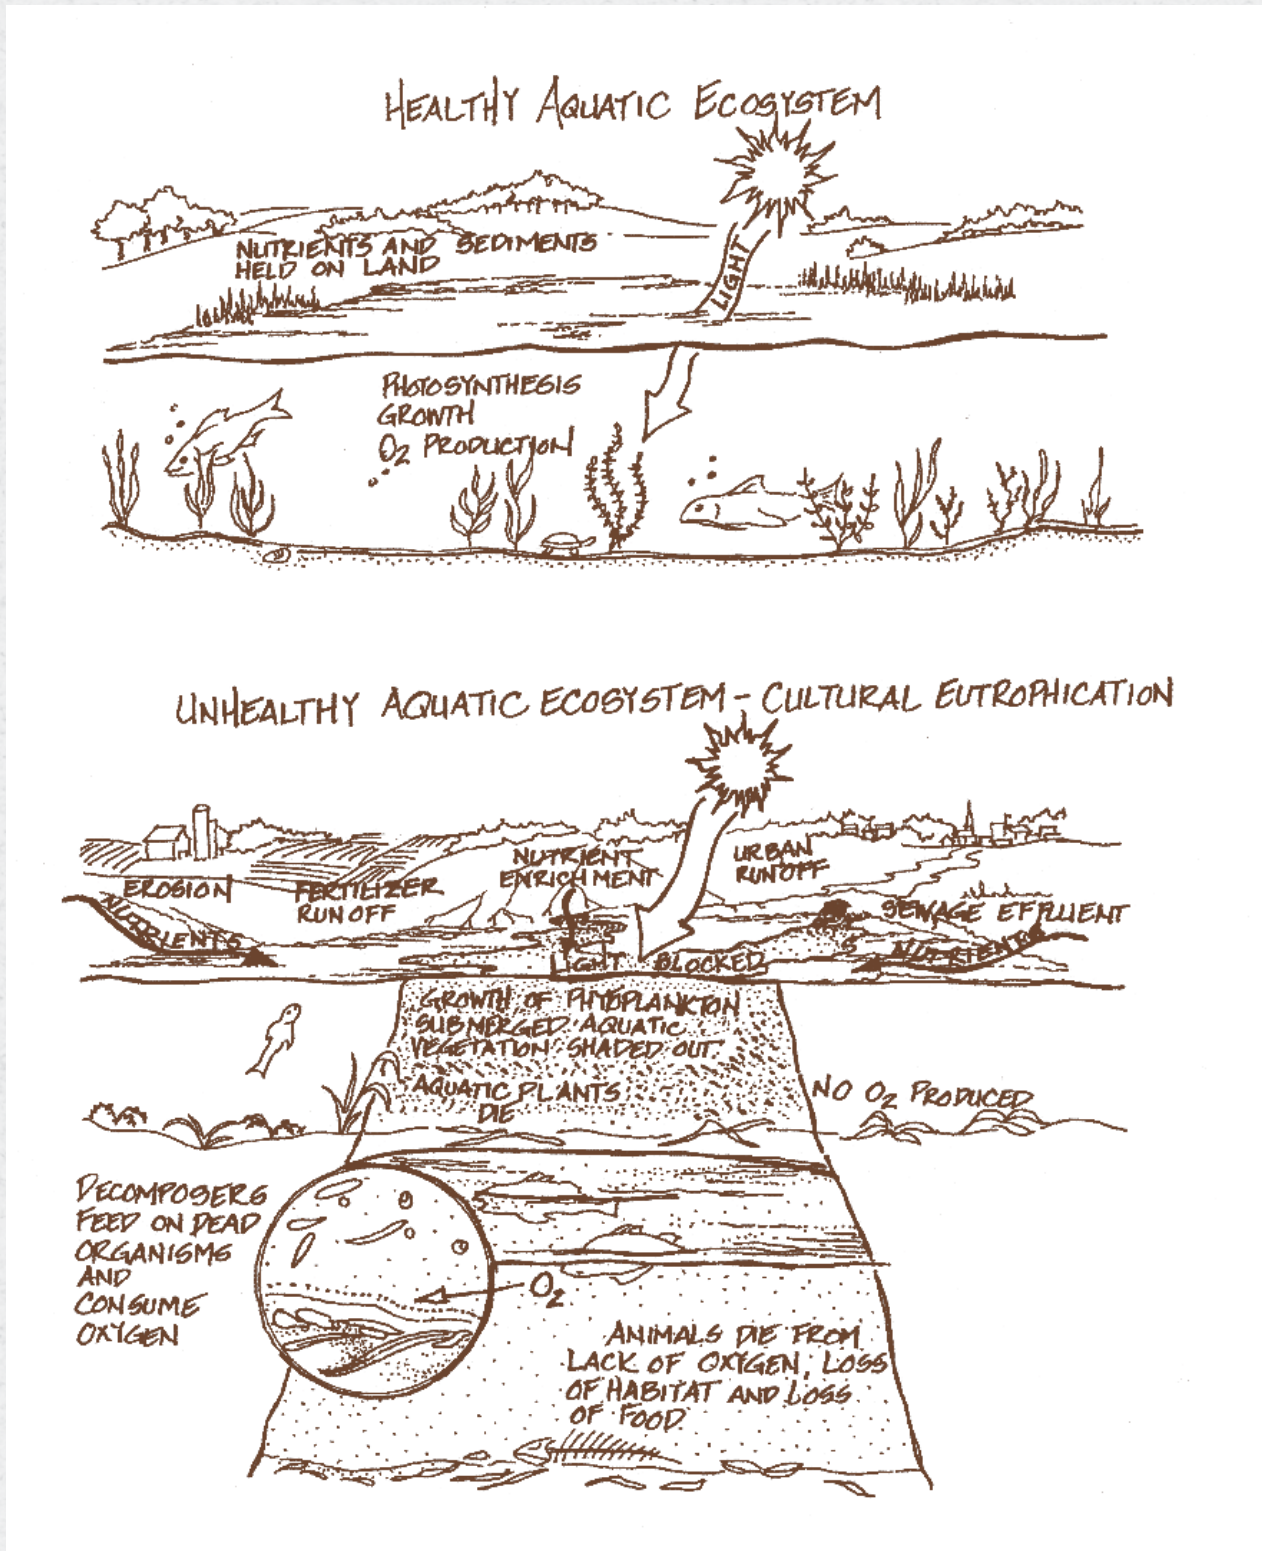 HEALTHY AQUATIC ECOSYSTEM
NUTRIENTS AND SEDIMENTS
HELD ON LAND
LIGHT
PHOTOSYNTHESIS
GROWTH
O₂ PRODUCTION
UNHEALTHY AQUATIC ECOSYSTEM - CULTURAL EUTROPHICATION
EROSION
NUTRIENTS
FERTILIZER
RUNOFF
NUTRIENT
ENRICHMENT
URBAN
RUNOFF
SEWAGE EFFLUENT
NUTRIENTS
LIGHT BLOCKED
GROWTH OF PHYTOPLANKTON
SUBMERGED AQUATIC
VEGETATION SHADED OUT
AQUATIC PLANTS
DIE
NO O₂ PRODUCED
DECOMPOSERS
FEED ON DEAD
ORGANISMS
AND
CONSUME
OXYGEN
O₂
ANIMALS DIE FROM
LACK OF OXYGEN, LOSS
OF HABITAT AND LOSS
OF FOOD